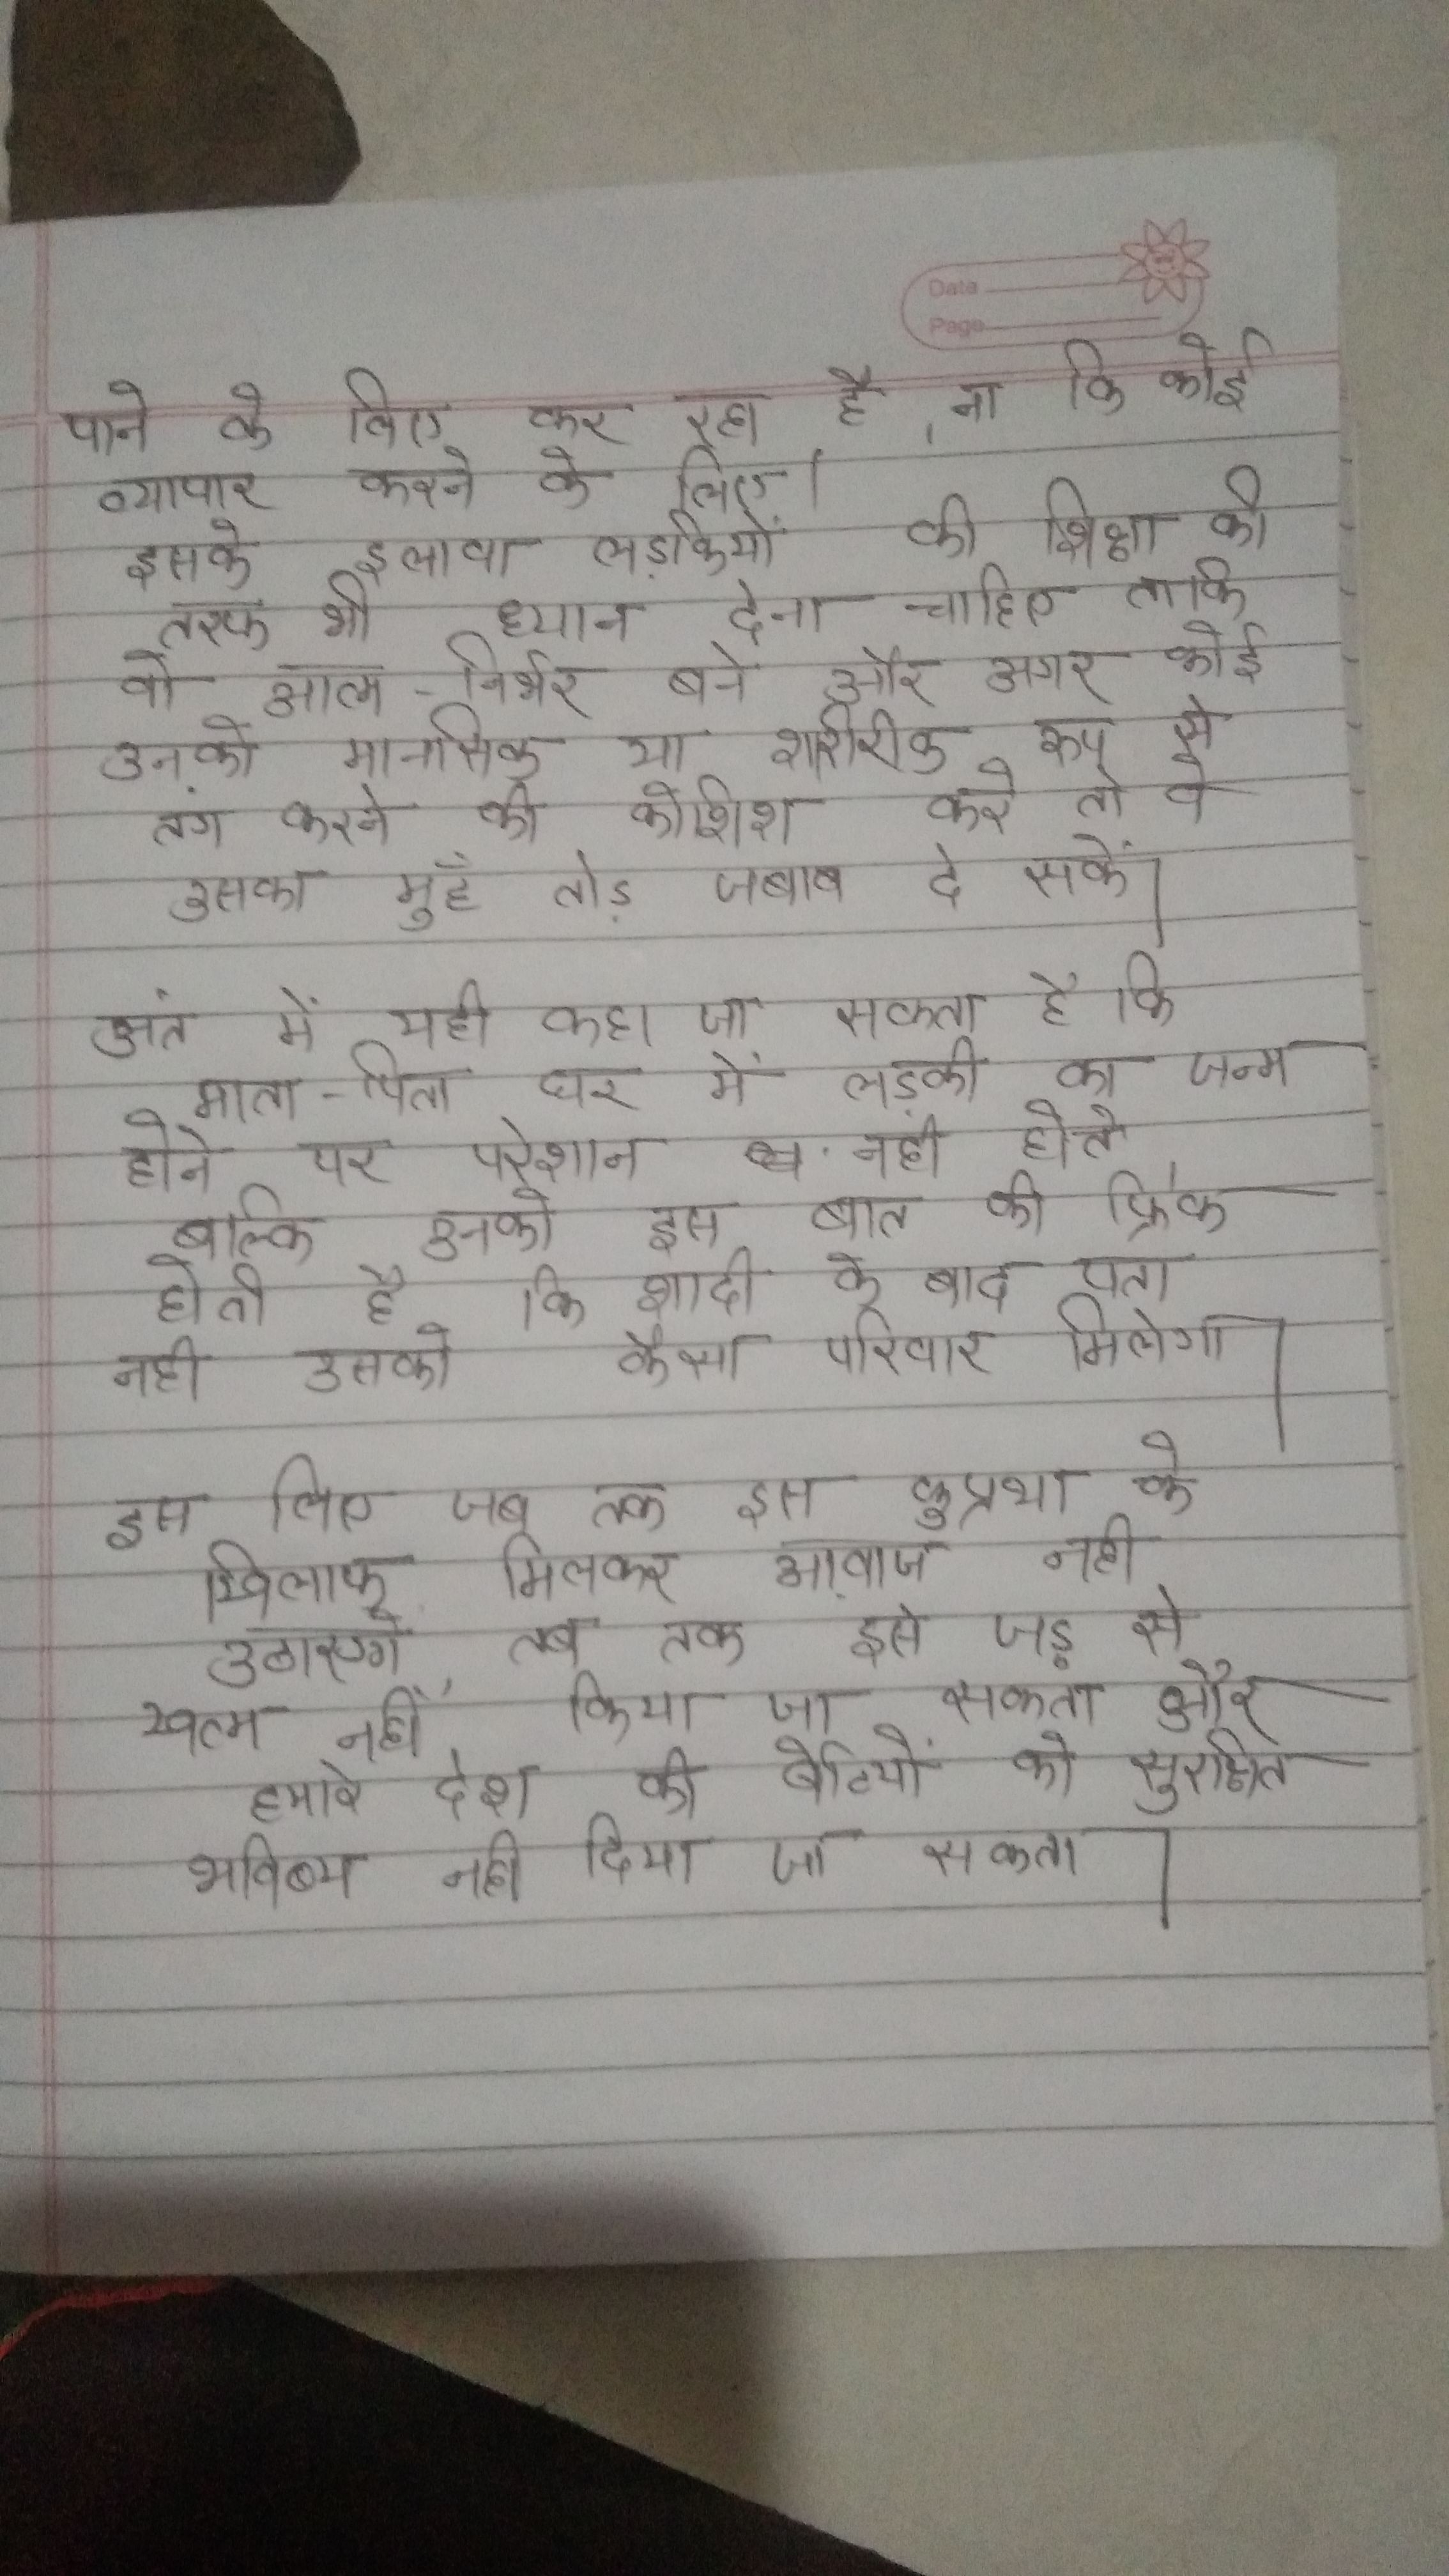 Date
Page
पाने के लिए कर रहा है, ना कि कोई
व्यापार करने के लिए।
इसके इलावा लड़कियों की शिक्षा की
तरफ भी ध्यान देना चाहिए ताकि
वो आत्म-निर्भर बने और अगर कोई
उनको मानसिक या शरीरीक रूप से
तंग करने की कोशिश करे तो वे
उसका मुहँ तोड़ जबाब दे सकें।
अंत में यही कहा जा सकता है कि
माता-पिता घर में लड़की का जन्म
होने पर परेशान नही होते
बल्कि उनको इस बात की फ्रिक
होती है कि शादी के बाद पता
नही उसको कैसा परिवार मिलेगा।
इस लिए जब तक इस कुप्रथा के
खिलाफ मिलकर आवाज नही
उठाएगे, तब तक इसे जड़ से
खत्म नहीं किया जा सकता और
हमारे देश की बेटियों को सुरक्षित
भविष्य नही दिया जा सकता।